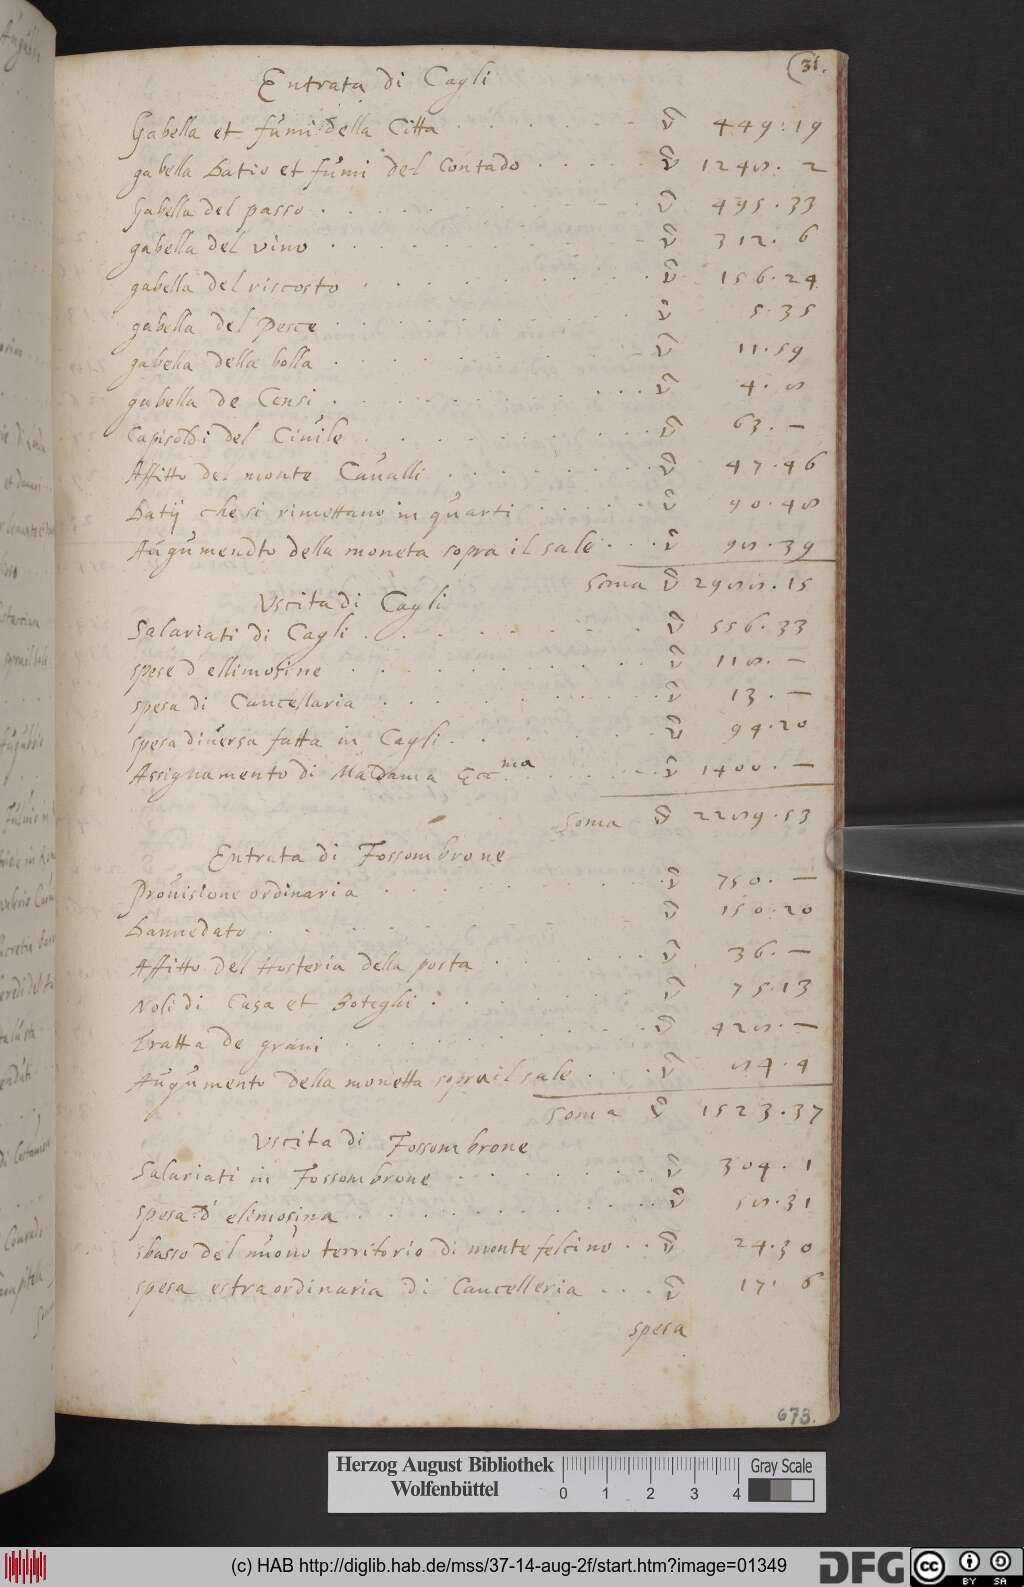 (31.
Entrata di Cagli
Gabella et fumi della Citta ∇ 449:19
gabella Datio et fumi del Contado ∇ 1248. 2
Gabella del passo ∇ 495.33
gabella del vino ∇ 312. 6
gabella del riscosto ∇ 156.24
gabella del Pesce ∇ 5.35
gabella della bolla ∇ 11.59
gabella de Censi ∇ 4. 8
Capisoldi del Ciuile ∇ 63. —
Affitto del monte Caualli ∇ 47.46
Datij che si rimettano in quarti ∇ 90.48
Augumendto della moneta sopra il sale ∇ 98.39
Soma ∇ 2988.15
Vscita di Cagli
Salariati di Cagli ∇ 556.33
spese d ellimosine ∇ 118. —
spesa di Cancellaria ∇ 13. —
spesa diuersa fatta in Cagli ∇ 94.20
Assignamento di Madama Ecc.ma ∇ 1400. —
Soma ∇ 2289.53
Entrata di Fossombrone
Prouisione ordinaria ∇ 750. —
Dannedato ∇ 150.20
Affitto del Hosteria della posta ∇ 36. —
Noli di Casa et Boteghi ∇ 75.13
Tratta de grani ∇ 428. —
Augumento della monetta sopra il sale ∇ 84.4
Soma ∇ 1523.37
Vscita di Fossombrone
Salariati in Fossombrone ∇ 304. 1
spesa d' elimosina ∇ 58.31
sbasso del nuouo territorio di monte felcino ∇ 24.30
spesa estraordinaria di Cancelleria ∇ 17. 6
spesa
673.
Herzog August Bibliothek
Wolfenbüttel
0 1 2 3 4
Gray Scale
(c) HAB http://diglib.hab.de/mss/37-14-aug-2f/start.htm?image=01349
DFG
cc BY SA